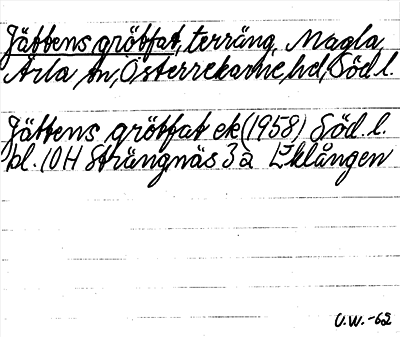 Jättens grötfat, terräng, Magla,
Ärla sn, Österrekarne hd, Söd.l.
Jättens grötfat ek (1958) Söd.l.
bl. 10H Strängnäs 3a Eklången
U.W. -62